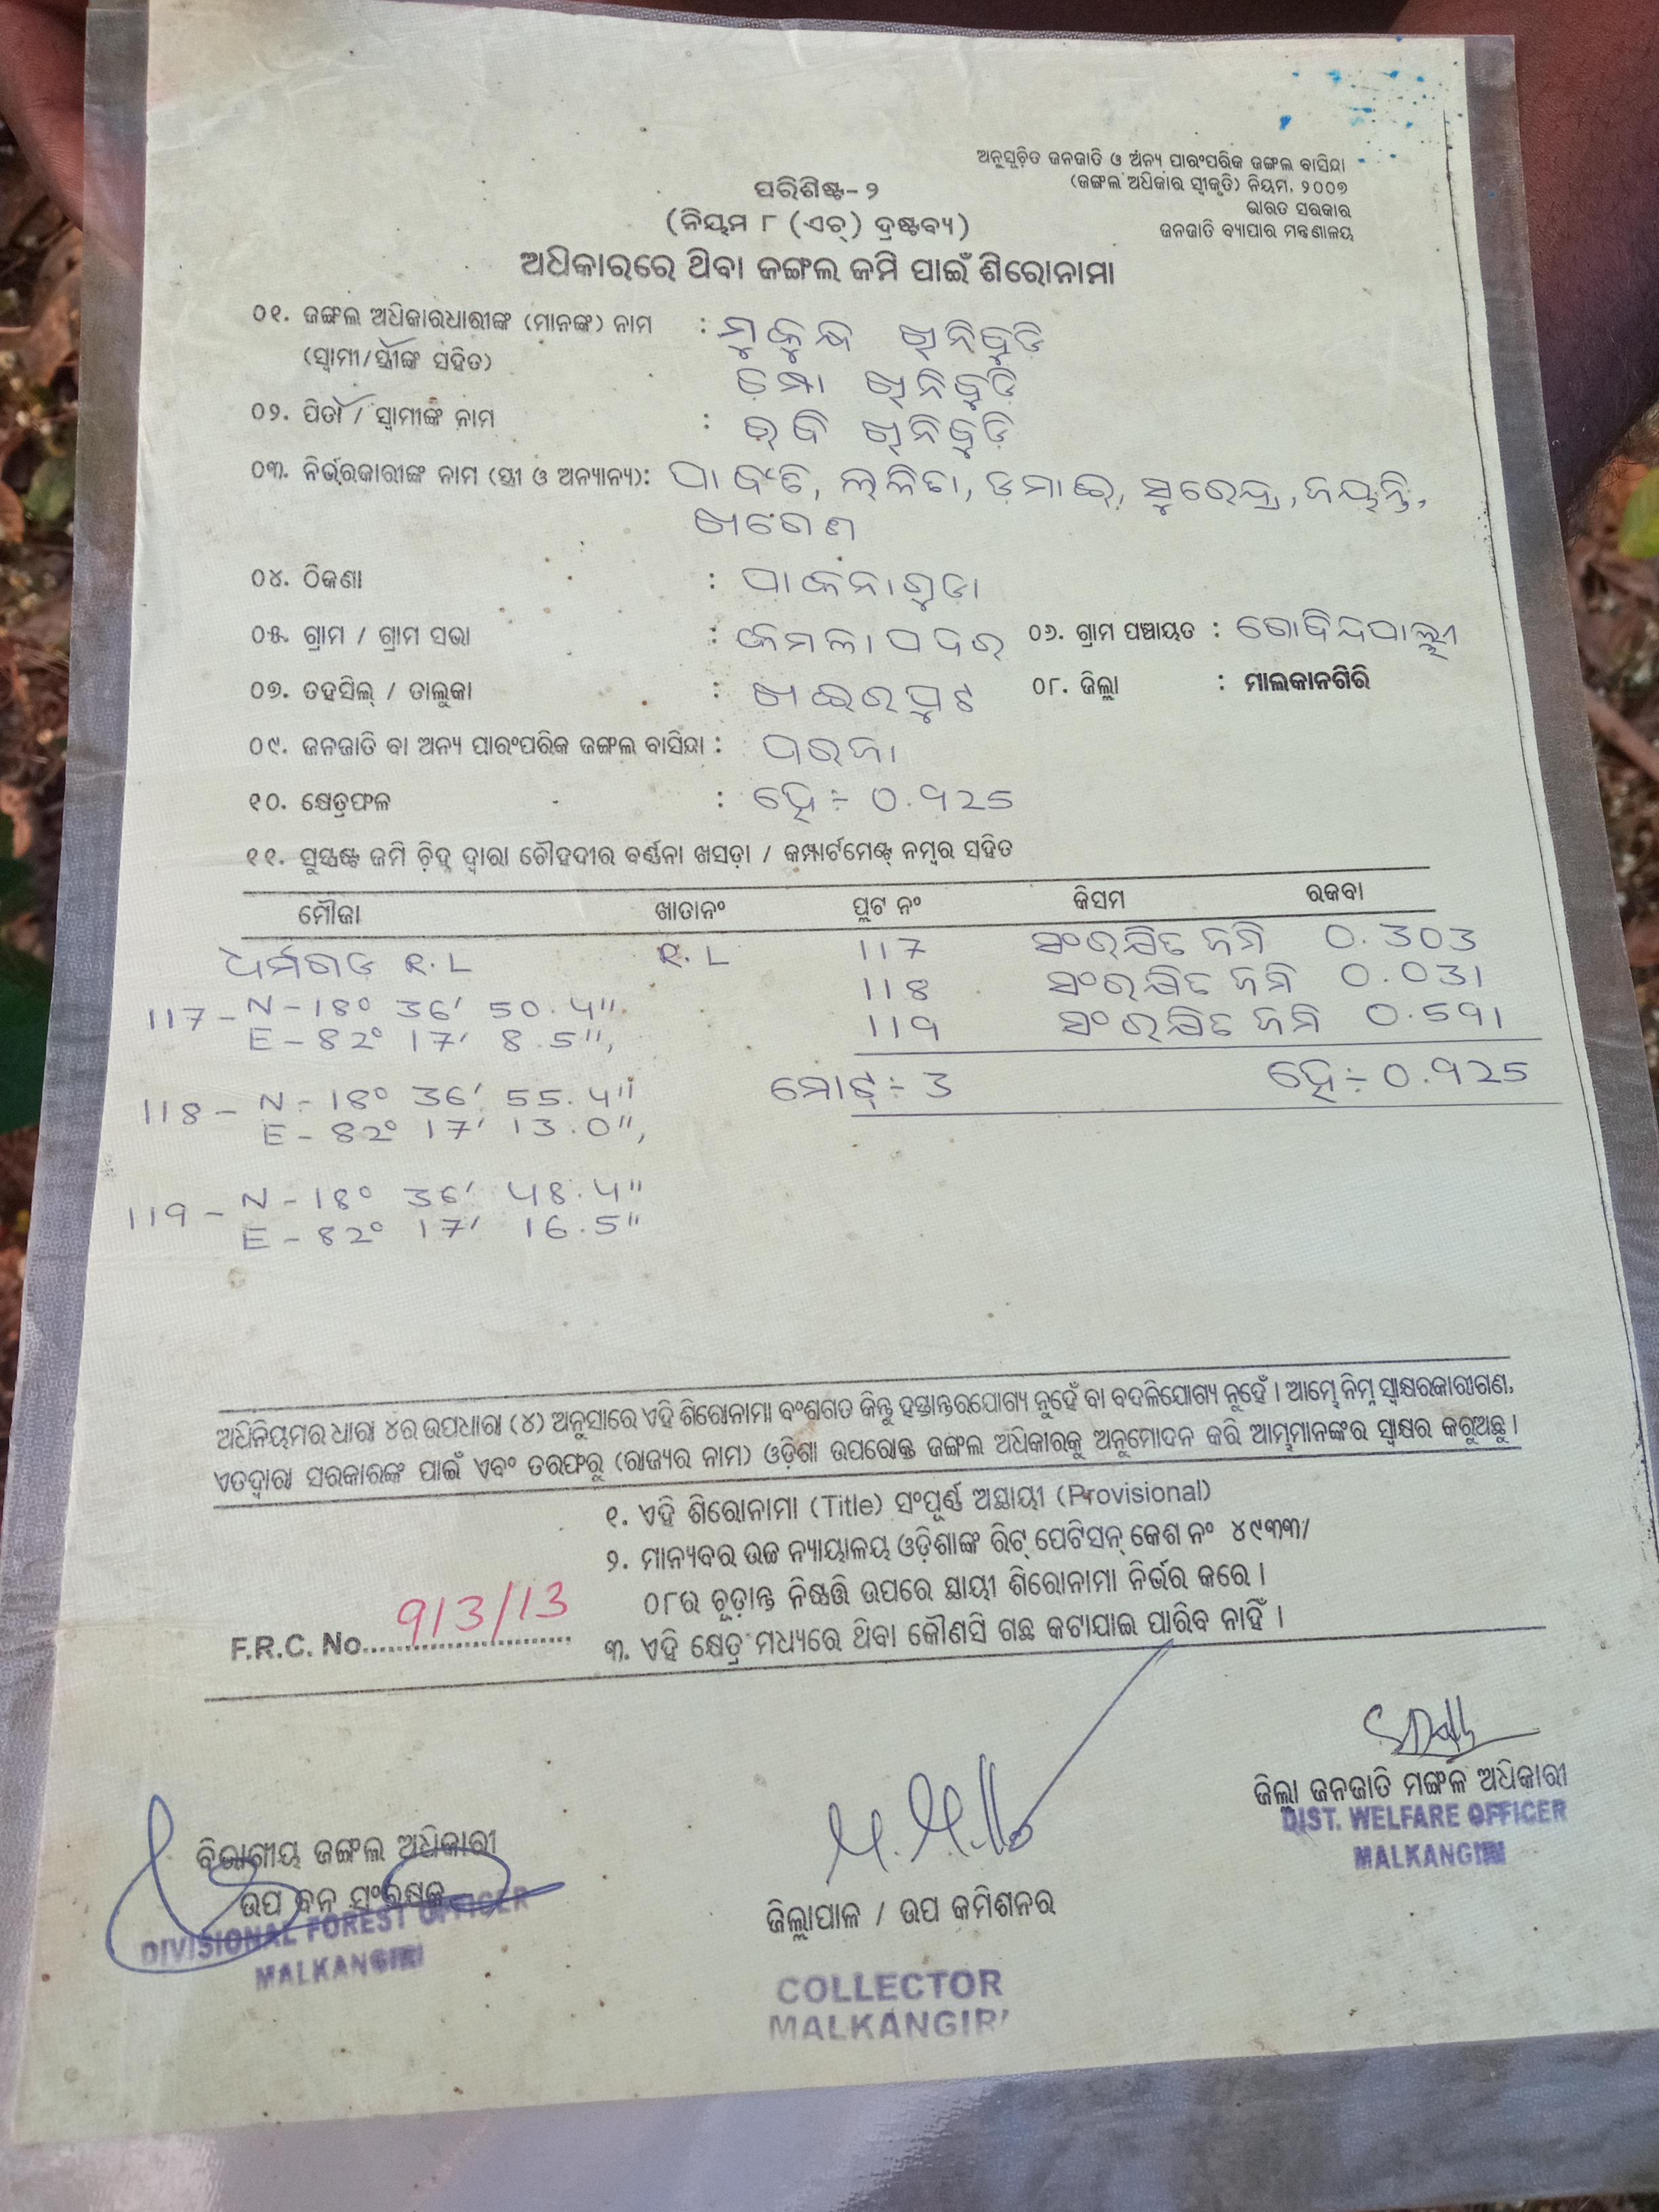 ଅନୁସୂଚିତ ଜନଜାତି ଓ ଅନ୍ୟ ପାରଂପରିକ ଜଙ୍ଗଲ ବାସିନ୍ଦା
(ଜଙ୍ଗଲ ଅଧିକାର ସ୍ୱୀକୃତି) ନିୟମ, ୨୦୦୭
ଭାରତ ସରକାର
ଜନଜାତି ବ୍ୟାପାର ମନ୍ତ୍ରଣାଳୟ
ପରିଶିଷ୍ଟ-୨
(ନିୟମ ୮ (ଏଚ୍) ଦ୍ରଷ୍ଟବ୍ୟ)
ଅଧିକାରରେ ଥିବା ଜଙ୍ଗଲ ଜମି ପାଇଁ ଶିରୋନାମା
୦୧. ଜଙ୍ଗଲ ଅଧିକାରଧାରୀଙ୍କ (ମାନଙ୍କ) ନାମ : ମୁକୁନ୍ଦ ଖିନିବୁଡି
(ସ୍ୱାମୀ/ସ୍ତ୍ରୀଙ୍କ ସହିତ) ଖିନିବୁଡି
୦୨. ପିତା / ସ୍ୱାମୀଙ୍କ ନାମ : ରବି ଖିନିବୁଡି
୦୩. ନିର୍ଭରକାରୀଙ୍କ ନାମ (ସ୍ତ୍ରୀ ଓ ଅନ୍ୟାନ୍ୟ): ପାର୍ବତି, ଲଳିତା, ଡମାଇ, ସୁରେନ୍ଦ୍ର, ଜୟନ୍ତି,
ଖଗେଣ
୦୪. ଠିକଣା : ପାକନାଗୁଡା
୦୫. ଗ୍ରାମ / ଗ୍ରାମ ସଭା : କମଳାପଦର ୦୬. ଗ୍ରାମ ପଞ୍ଚାୟତ : ଗୋବିନ୍ଦପାଲ୍ଲୀ
୦୭. ତହସିଲ୍ / ତାଲୁକା : ଖଇରପୁଟ ୦୮. ଜିଲ୍ଲା : ମାଲକାନଗିରି
୦୯. ଜନଜାତି ବା ଅନ୍ୟ ପାରଂପରିକ ଜଙ୍ଗଲ ବାସିନ୍ଦା : ପରଜା
୧୦. କ୍ଷେତ୍ରଫଳ : ହେ ÷ 0.925
୧୧. ସୁସ୍ପଷ୍ଟ ଜମି ଚିହ୍ନ ଦ୍ୱାରା ଚୌହଦୀର ବର୍ଣ୍ଣନା ଖସଡ଼ା / କମ୍ପାର୍ଟମେଣ୍ଟ୍ ନମ୍ବର ସହିତ
ମୌଜା ଖାତାନଂ ପ୍ଲଟ ନଂ କିସମ ରକବା
ଧର୍ମଗଡ R.L R.L 117 ସଂରକ୍ଷିତ ଜମି 0.303
117- N-18° 36' 50.4" 118 ସଂରକ୍ଷିତ ଜମି 0.031
E-82° 17' 8.5", 119 ସଂରକ୍ଷିତ ଜମି 0.591
118- N-18° 36' 55.4" ମୋଟ୍ ÷ 3 ହେ ÷ 0.925
E-82° 17' 13.0",
119- N-18° 36' 48.4"
E-82° 17' 16.5"
ଅଧିନିୟମର ଧାରା ୪ର ଉପଧାରା (୪) ଅନୁସାରେ ଏହି ଶିରୋନାମା ବଂଶଗତ କିନ୍ତୁ ହସ୍ତାନ୍ତରଯୋଗ୍ୟ ନୁହେଁ ବା ବଦଳିଯୋଗ୍ୟ ନୁହେଁ । ଆମ୍ଭେ ନିମ୍ନ ସ୍ୱାକ୍ଷରକାରୀଗଣ,
ଏତଦ୍ୱାରା ସରକାରଙ୍କ ପାଇଁ ଏବଂ ତରଫରୁ (ରାଜ୍ୟର ନାମ) ଓଡ଼ିଶା ଉପରୋକ୍ତ ଜଙ୍ଗଲ ଅଧିକାରକୁ ଅନୁମୋଦନ କରି ଆମ୍ଭମାନଙ୍କର ସ୍ୱାକ୍ଷର କରୁଅଛୁ ।
୧. ଏହି ଶିରୋନାମା (Title) ସଂପୂର୍ଣ୍ଣ ଅସ୍ଥାୟୀ (Provisional)
୨. ମାନ୍ୟବର ଉଚ୍ଚ ନ୍ୟାୟାଳୟ ଓଡ଼ିଶାଙ୍କ ରିଟ୍ ପେଟିସନ୍ କେଶ ନଂ ୪୯୩୩/
୦୮ର ଚୂଡ଼ାନ୍ତ ନିଷ୍ପତ୍ତି ଉପରେ ସ୍ଥାୟୀ ଶିରୋନାମା ନିର୍ଭର କରେ ।
୩. ଏହି କ୍ଷେତ୍ର ମଧ୍ୟରେ ଥିବା କୌଣସି ଗଛ କଟାଯାଇ ପାରିବ ନାହିଁ ।
F.R.C. No. 913/13
ଜିଲ୍ଲା ଜନଜାତି ମଙ୍ଗଳ ଅଧିକାରୀ
DIST. WELFARE OFFICER
MALKANGIRI
ବିଭାଗୀୟ ଜଙ୍ଗଲ ଅଧିକାରୀ
ଉପ ବନ ସଂରକ୍ଷକ
DIVISIONAL FOREST OFFICER
MALKANGIRI
ଜିଲ୍ଲାପାଳ / ଉପ କମିଶନର
COLLECTOR
MALKANGIRI